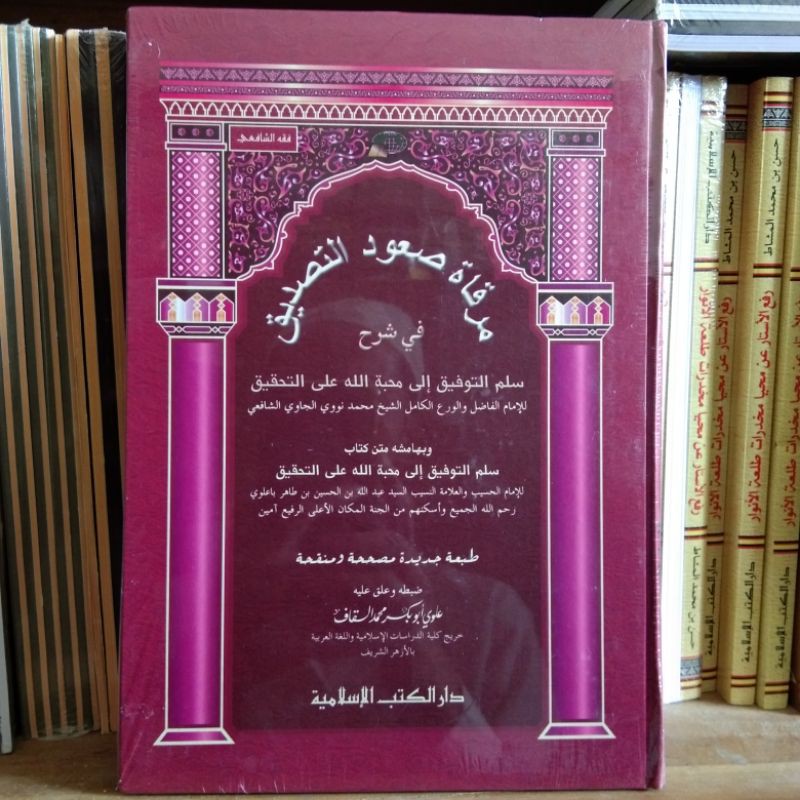 فقه الشافعي
مرقاة صعود التصديق
في شرح
سلم التوفيق إلى محبة الله على التحقيق
للإمام الفاضل والورع الكامل الشيخ محمد نووي الجاوي الشافعي
وبهامشه متن كتاب
سلم التوفيق إلى محبة الله على التحقيق
للإمام الحسيب والعلامة النسيب السيد عبد الله بن الحسين بن طاهر باعلوي
رحم الله الجميع وأسكنهم من الجنة المكان الأعلى الرفيع آمين
طبعة جديدة مصححة ومنقحة
ضبطه وعلق عليه
علوي أبو بكر محمد السقاف
خريج كلية الدراسات الإسلامية واللغة العربية
بالأزهر الشريف
دار الكتب الإسلامية
دار الكتب الإسلامية رفع الأستار عن محيا مخدرات طلعة الأنوار حسن بن محمد المشاط
حسن بن محمد المشاط رفع الأستار عن محيا مخدرات طلعة الأنوار دار الكتب الإسلامية
حسن بن محمد المشاط رفع الأستار عن محيا مخدرات طلعة الأنوار دار الكتب الإسلامية